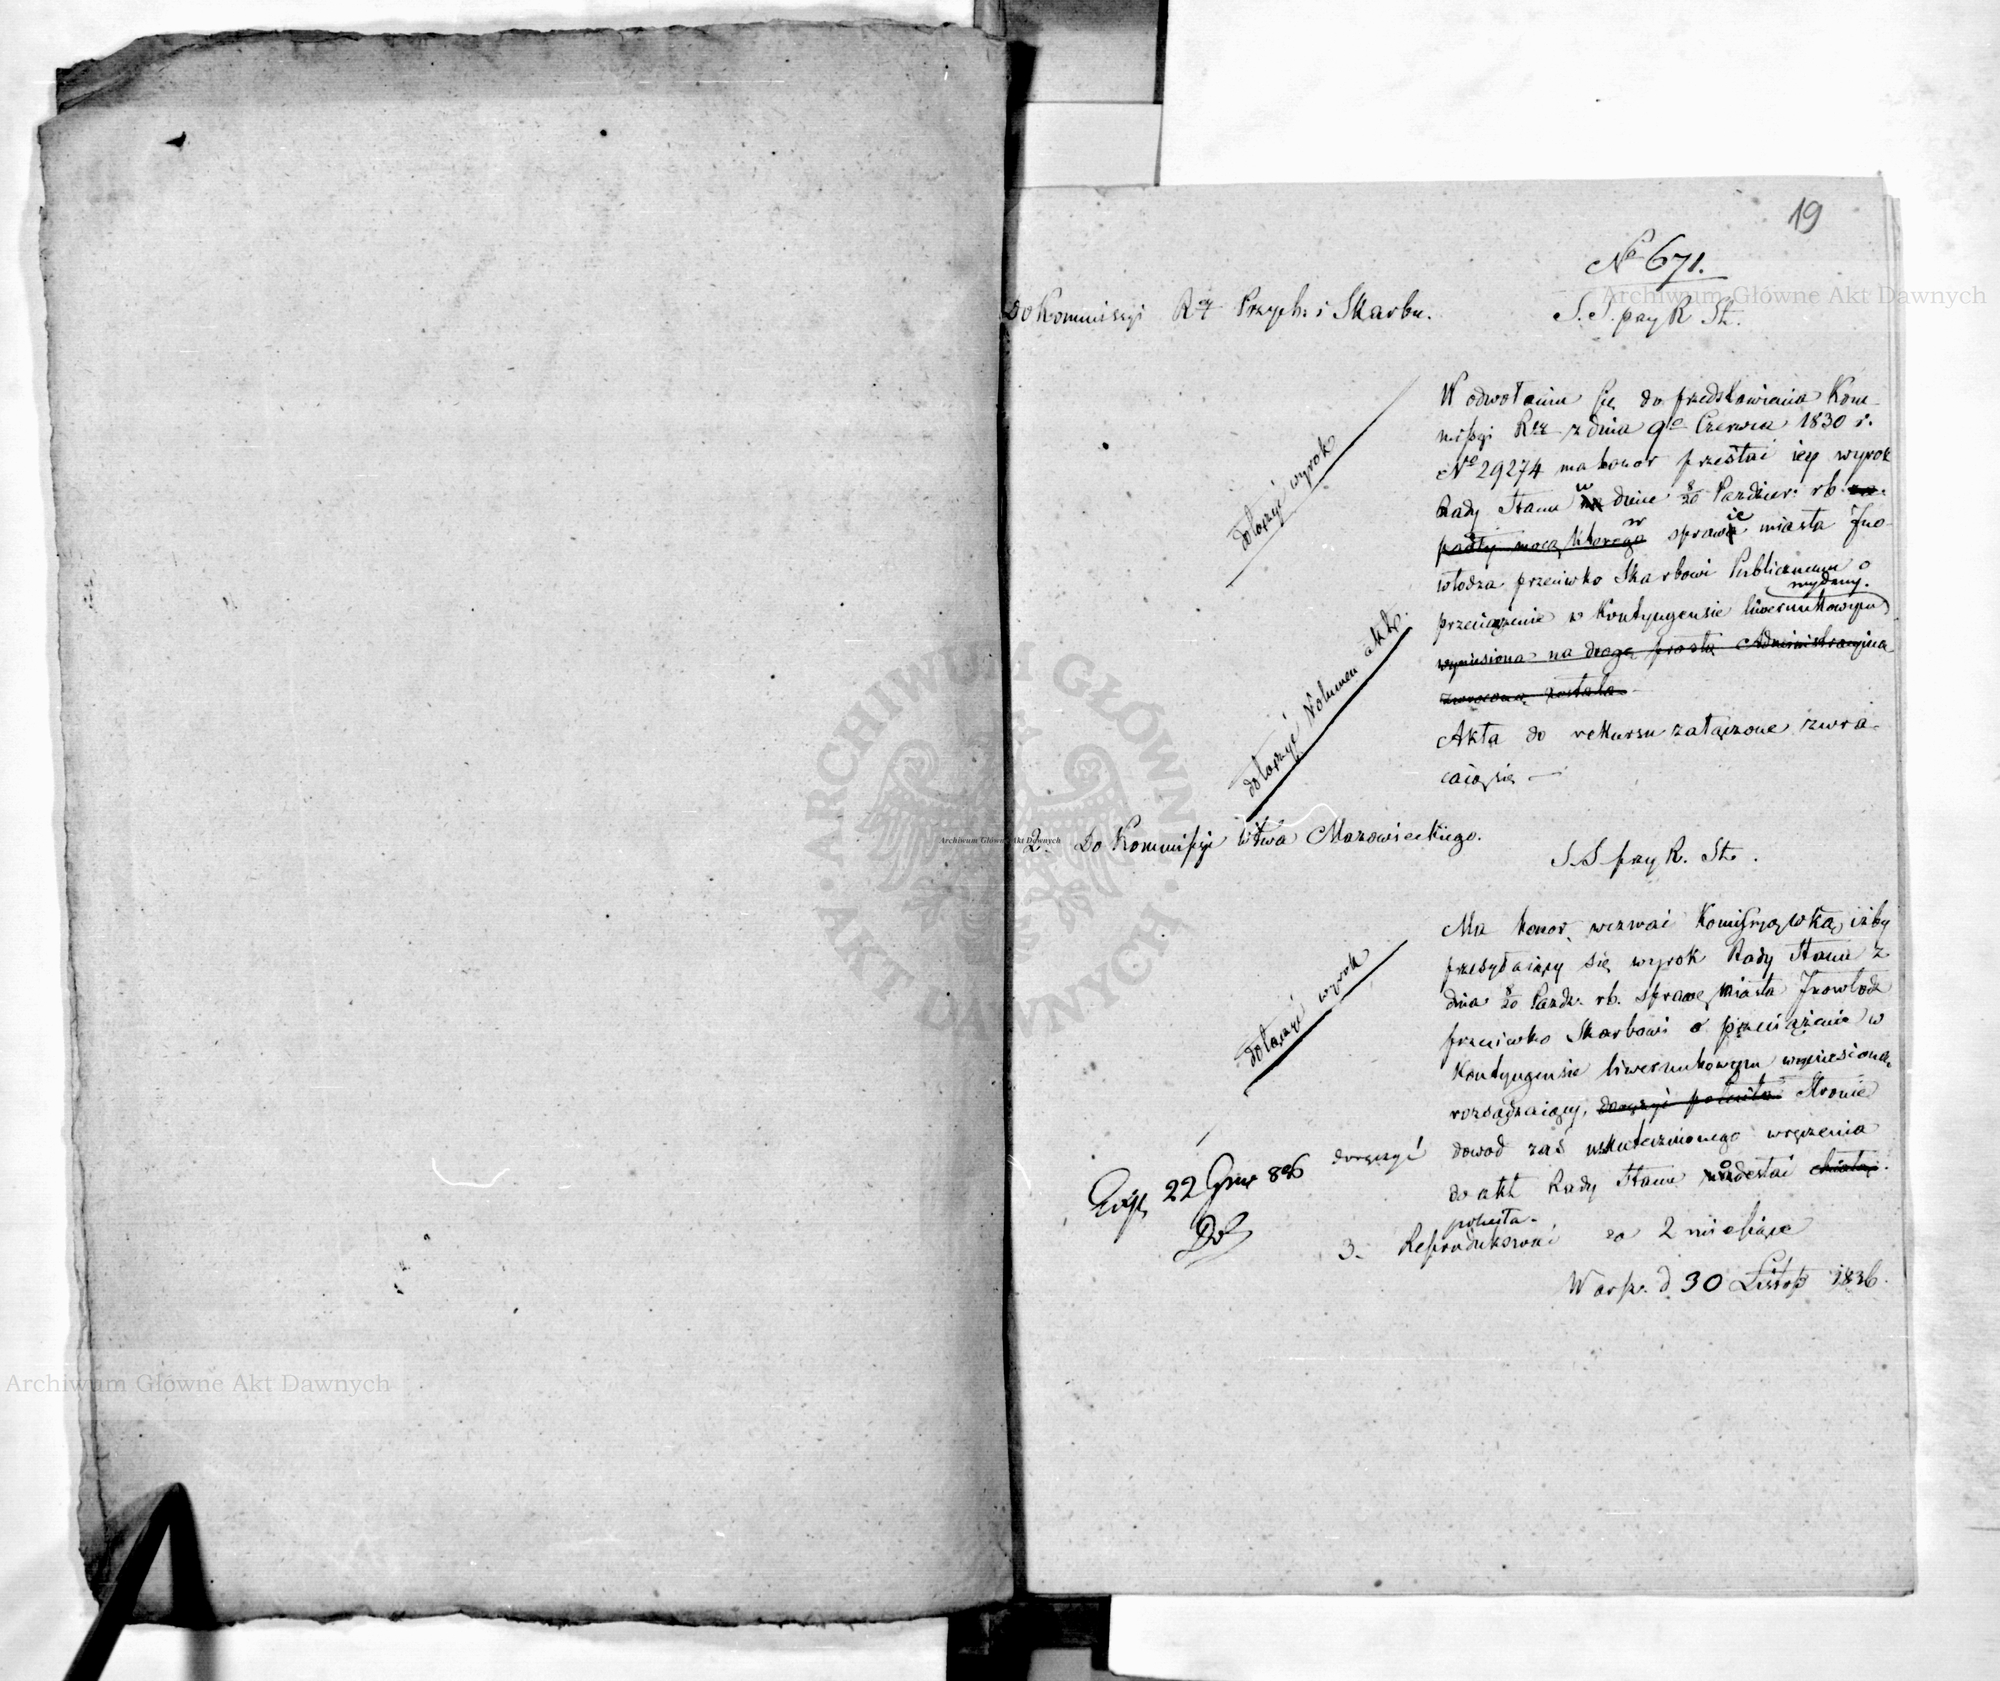 19
No 671.
Do Kommissyi Rzą Przych. i Skarbu.
S. S. przy R St.
W odwołaniu się do przedstawienia Kom-
missyi Rzą z dnia 9go Czerwca 1830 r.
No 29274 ma honor przesłać iey wyrok
Rady Stanu w dniu 8/20 Paździer: rb. za-
padły mocą którego w sprawie miasta Ino-
włodza przeciwko Skarbowi Publicznemu o
wydany.
przeciążenie w Kontyngensie liwerunkowym
wyniesiona na drogę prostą Administracyiną
zwrocona została.
Akta do rekursu załączone zwra-
caią się —
dołączyć wyrok
dołączyć Volumen akt.
2. Do Kommissyi Wtwa Mazowieckiego.
S. S przy R. St.
Ma honor wezwać Komissyą Wką, iżby
przesyłaiący się wyrok Rady Stanu z
dnia 8/20 Paźdz. rb. sprawę miasta Inowłodz
przeciwko Skarbowi o przeciążenie w
Kontyngensie liwerunkowym wyniesioną
rozsądzaiący, doręczyć poleciła Stronie
doręczyć
dowod zaś uskutecznionego wręczenia
do akt Rady Stanu odesłać chciała.
poleciła.
dołączyć wyrok
Exp. 22 Grud 836
3. Reprodukować za 2 miesiące
Warsz. d 30 Listop 1836.
Archiwum Główne Akt Dawnych
Archiwum Główne Akt Dawnych
Archiwum Główne Akt Dawnych
ARCHIWUM GŁÓWNE
AKT DAWNYCH